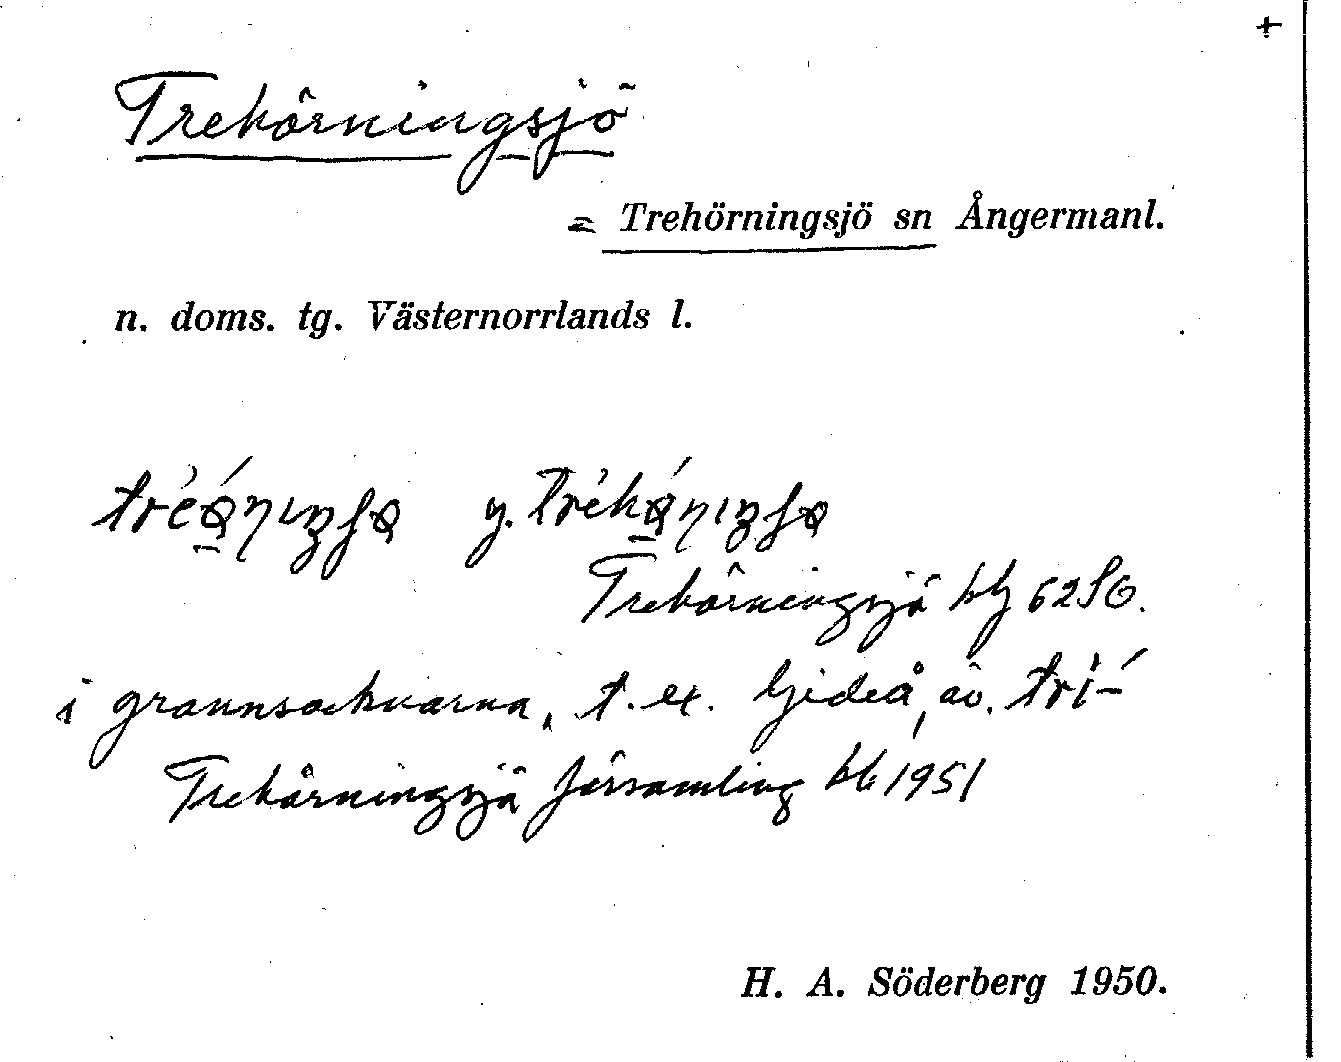 +
Trehörningsjö
= Trehörningsjö sn Ångermanl.
n. doms. tg. Västernorrlands l.
y.
Trehörningsjö blj 62 SO.
i grannsocknarna, t. ex. Gideå, äv. tri-
Trehörningsjö församling bl. 1951
H. A. Söderberg 1950.